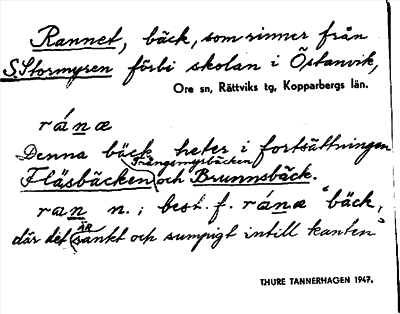 Rannet, bäck, som rinner från
S. Stormyren förbi skolan i Östanvik,
Ore sn, Rättviks tg, Kopparbergs län.
ránæ
Denna bäck heter i fortsättningen
Trångsmyrbäcken
Fläsbäcken och Brunnsbäck.
ran n. ; best. f. ránæ "bäck,
där det är sankt och sumpigt intill kanten"
THURE TANNERHAGEN 1947.